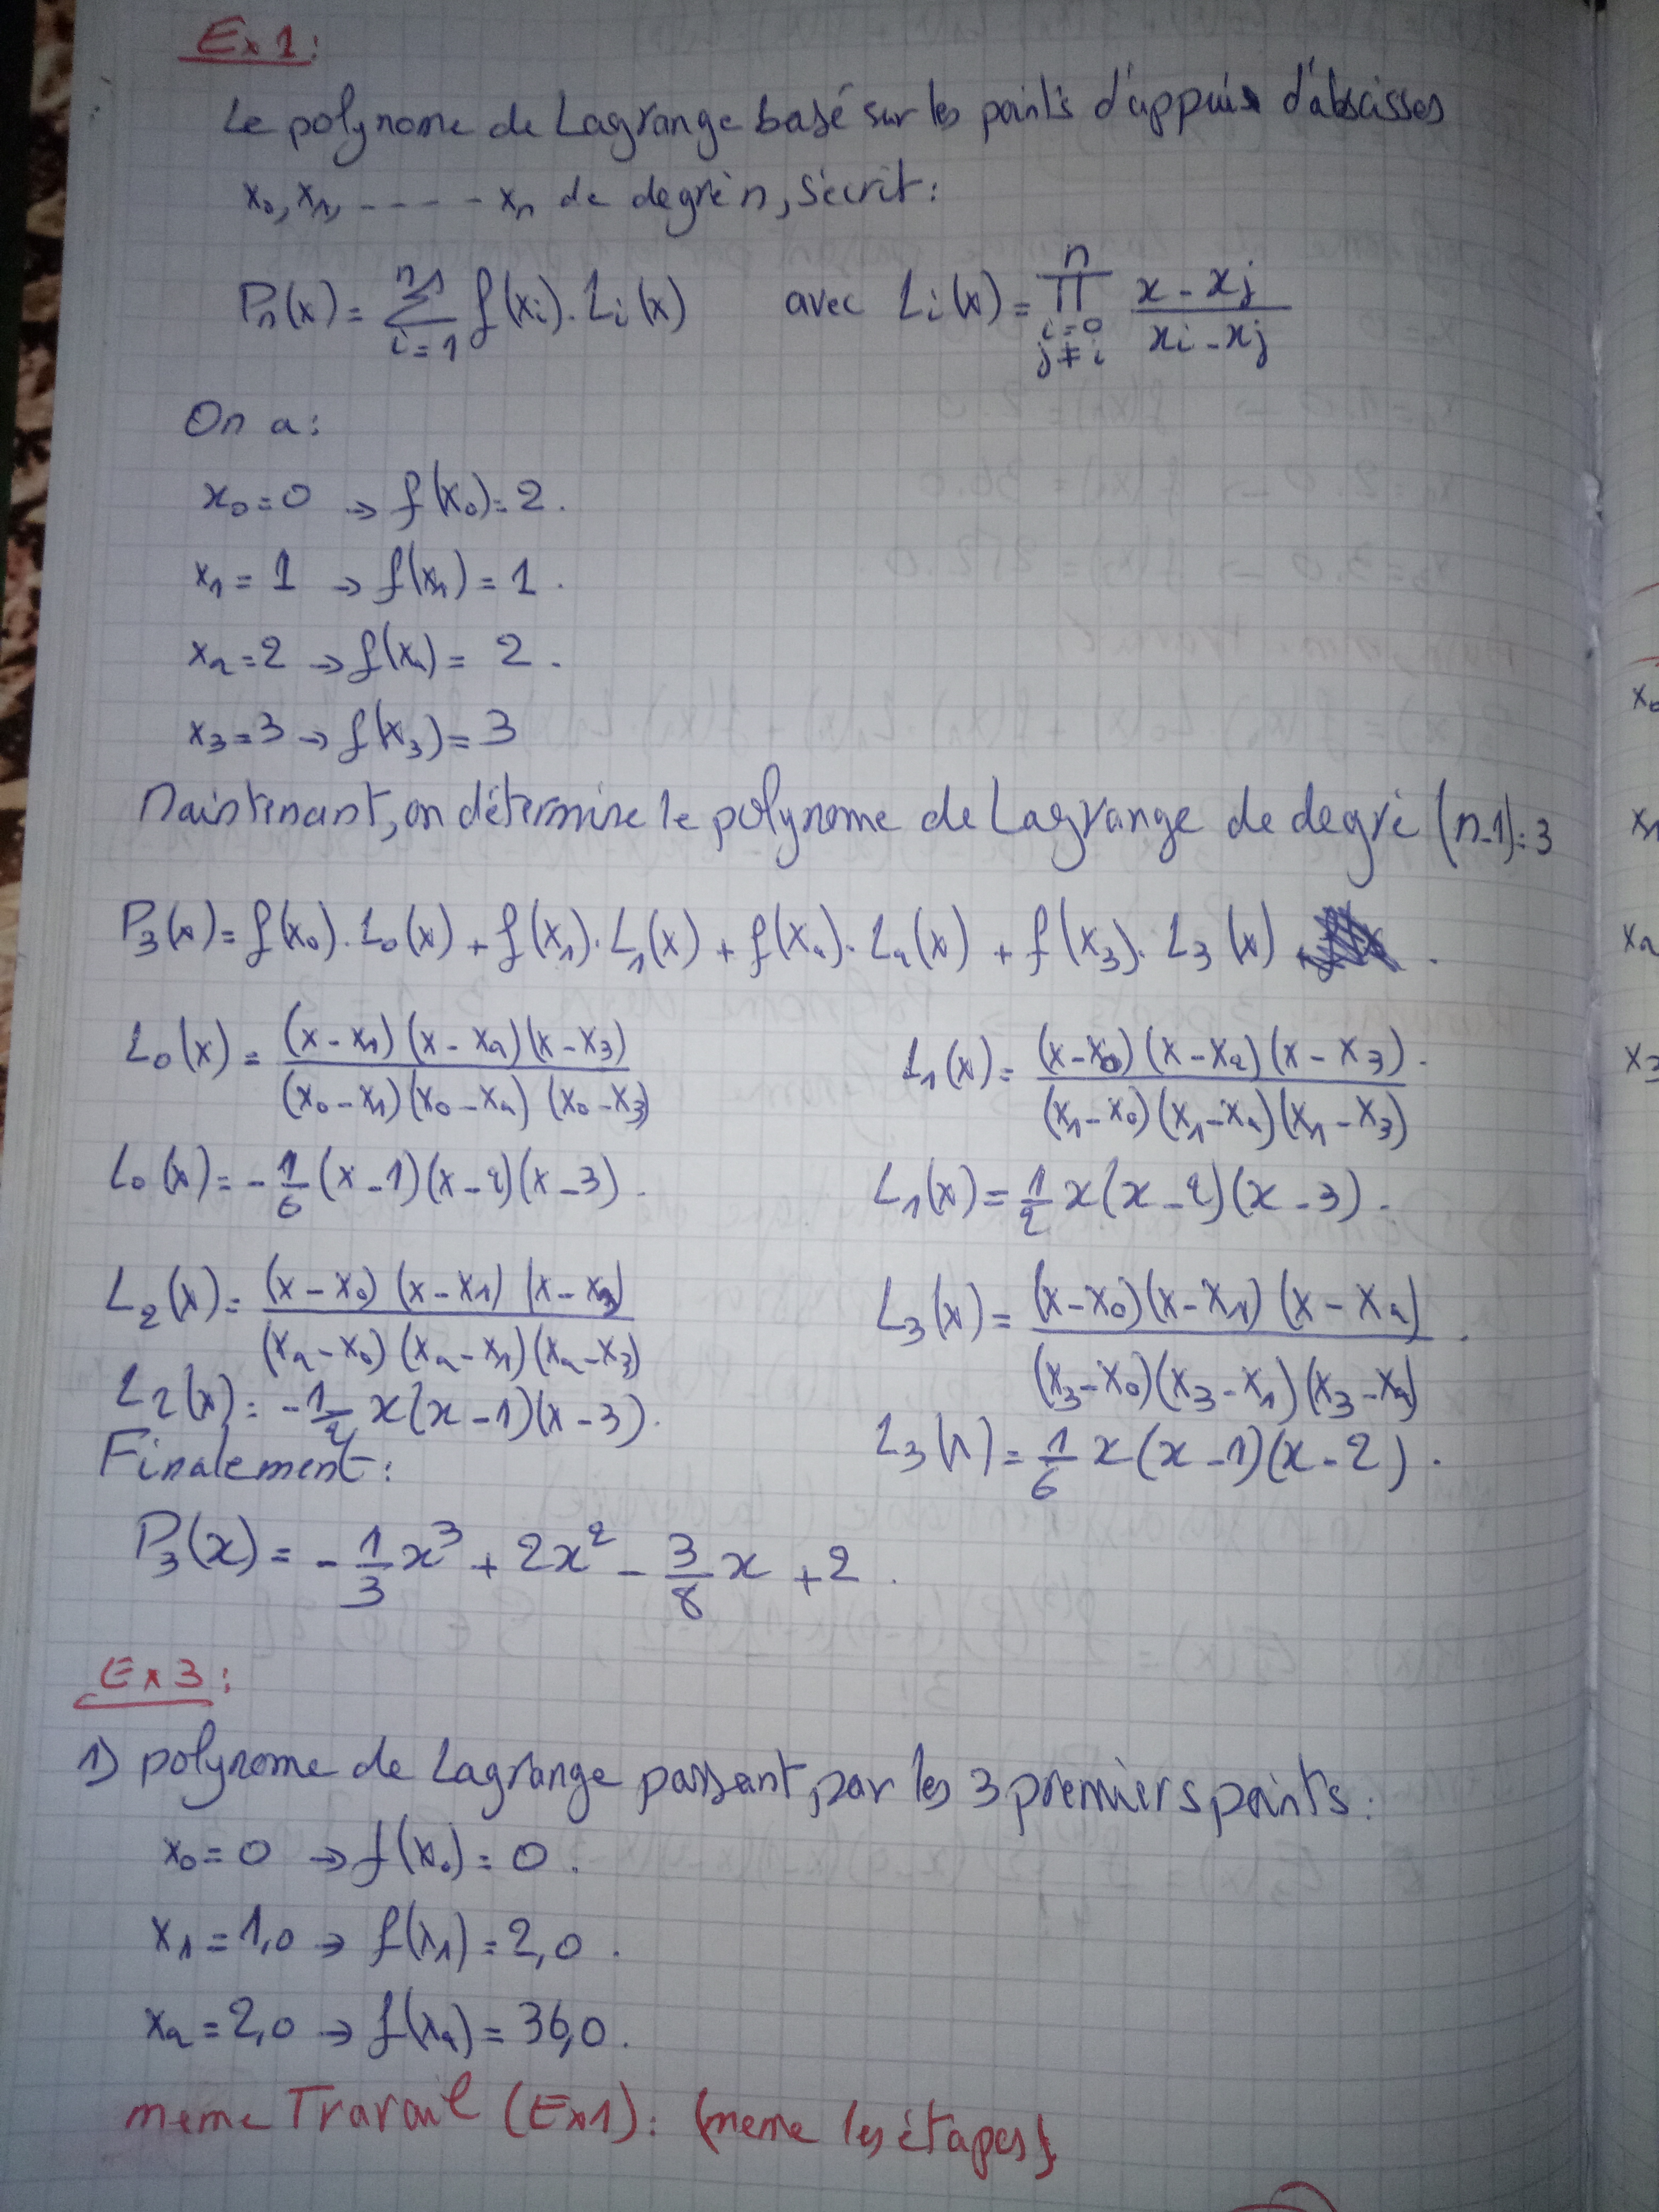 Ex 1:
Le polynome de Lagrange basé sur les points d'appuis d'abscisses
x₀, x₁, ----- xₙ de degré n, s'écrit:
Pₙ(x) = Σ_{i=1}^{n+1} f(xi). Li(x) avec Li(x) = Π_{i=0, j≠i}^{n} (x - xj)/(xi - xj)
On a:
x₀ = 0 → f(x₀) = 2.
x₁ = 1 → f(x₁) = 1.
x₂ = 2 → f(x₂) = 2.
x₃ = 3 → f(x₃) = 3
Maintenant, on détermine le polynome de Lagrange de degré (n-1) = 3
P₃(x) = f(x₀). L₀(x) + f(x₁). L₁(x) + f(x₂). L₂(x) + f(x₃). L₃(x) .
L₀(x) = (x - x₁)(x - x₂)(x - x₃)/(x₀ - x₁)(x₀ - x₂)(x₀ - x₃) L₁(x) = (x - x₀)(x - x₂)(x - x₃)/(x₁ - x₀)(x₁ - x₂)(x₁ - x₃).
L₀(x) = - 1/6 (x - 1)(x - 2)(x - 3). L₁(x) = 1/2 x(x - 2)(x - 3).
L₂(x) = (x - x₀)(x - x₁)(x - x₃)/(x₂ - x₀)(x₂ - x₁)(x₂ - x₃) L₃(x) = (x - x₀)(x - x₁)(x - x₂)/(x₃ - x₀)(x₃ - x₁)(x₃ - x₂).
L₂(x) = - 1/2 x(x - 1)(x - 3). L₃(x) = 1/6 x(x - 1)(x - 2).
Finalement:
P₃(x) = - 1/3 x³ + 2x² - 3/8 x + 2.
Ex 3:
1) polynome de Lagrange passant, par les 3 premiers points:
x₀ = 0 → f(x₀) = 0.
x₁ = 1,0 → f(x₁) = 2,0.
x₂ = 2,0 → f(x₂) = 36,0.
meme Travail (Ex1): (meme les étapes)
x₀
x₁
x₂
x₃